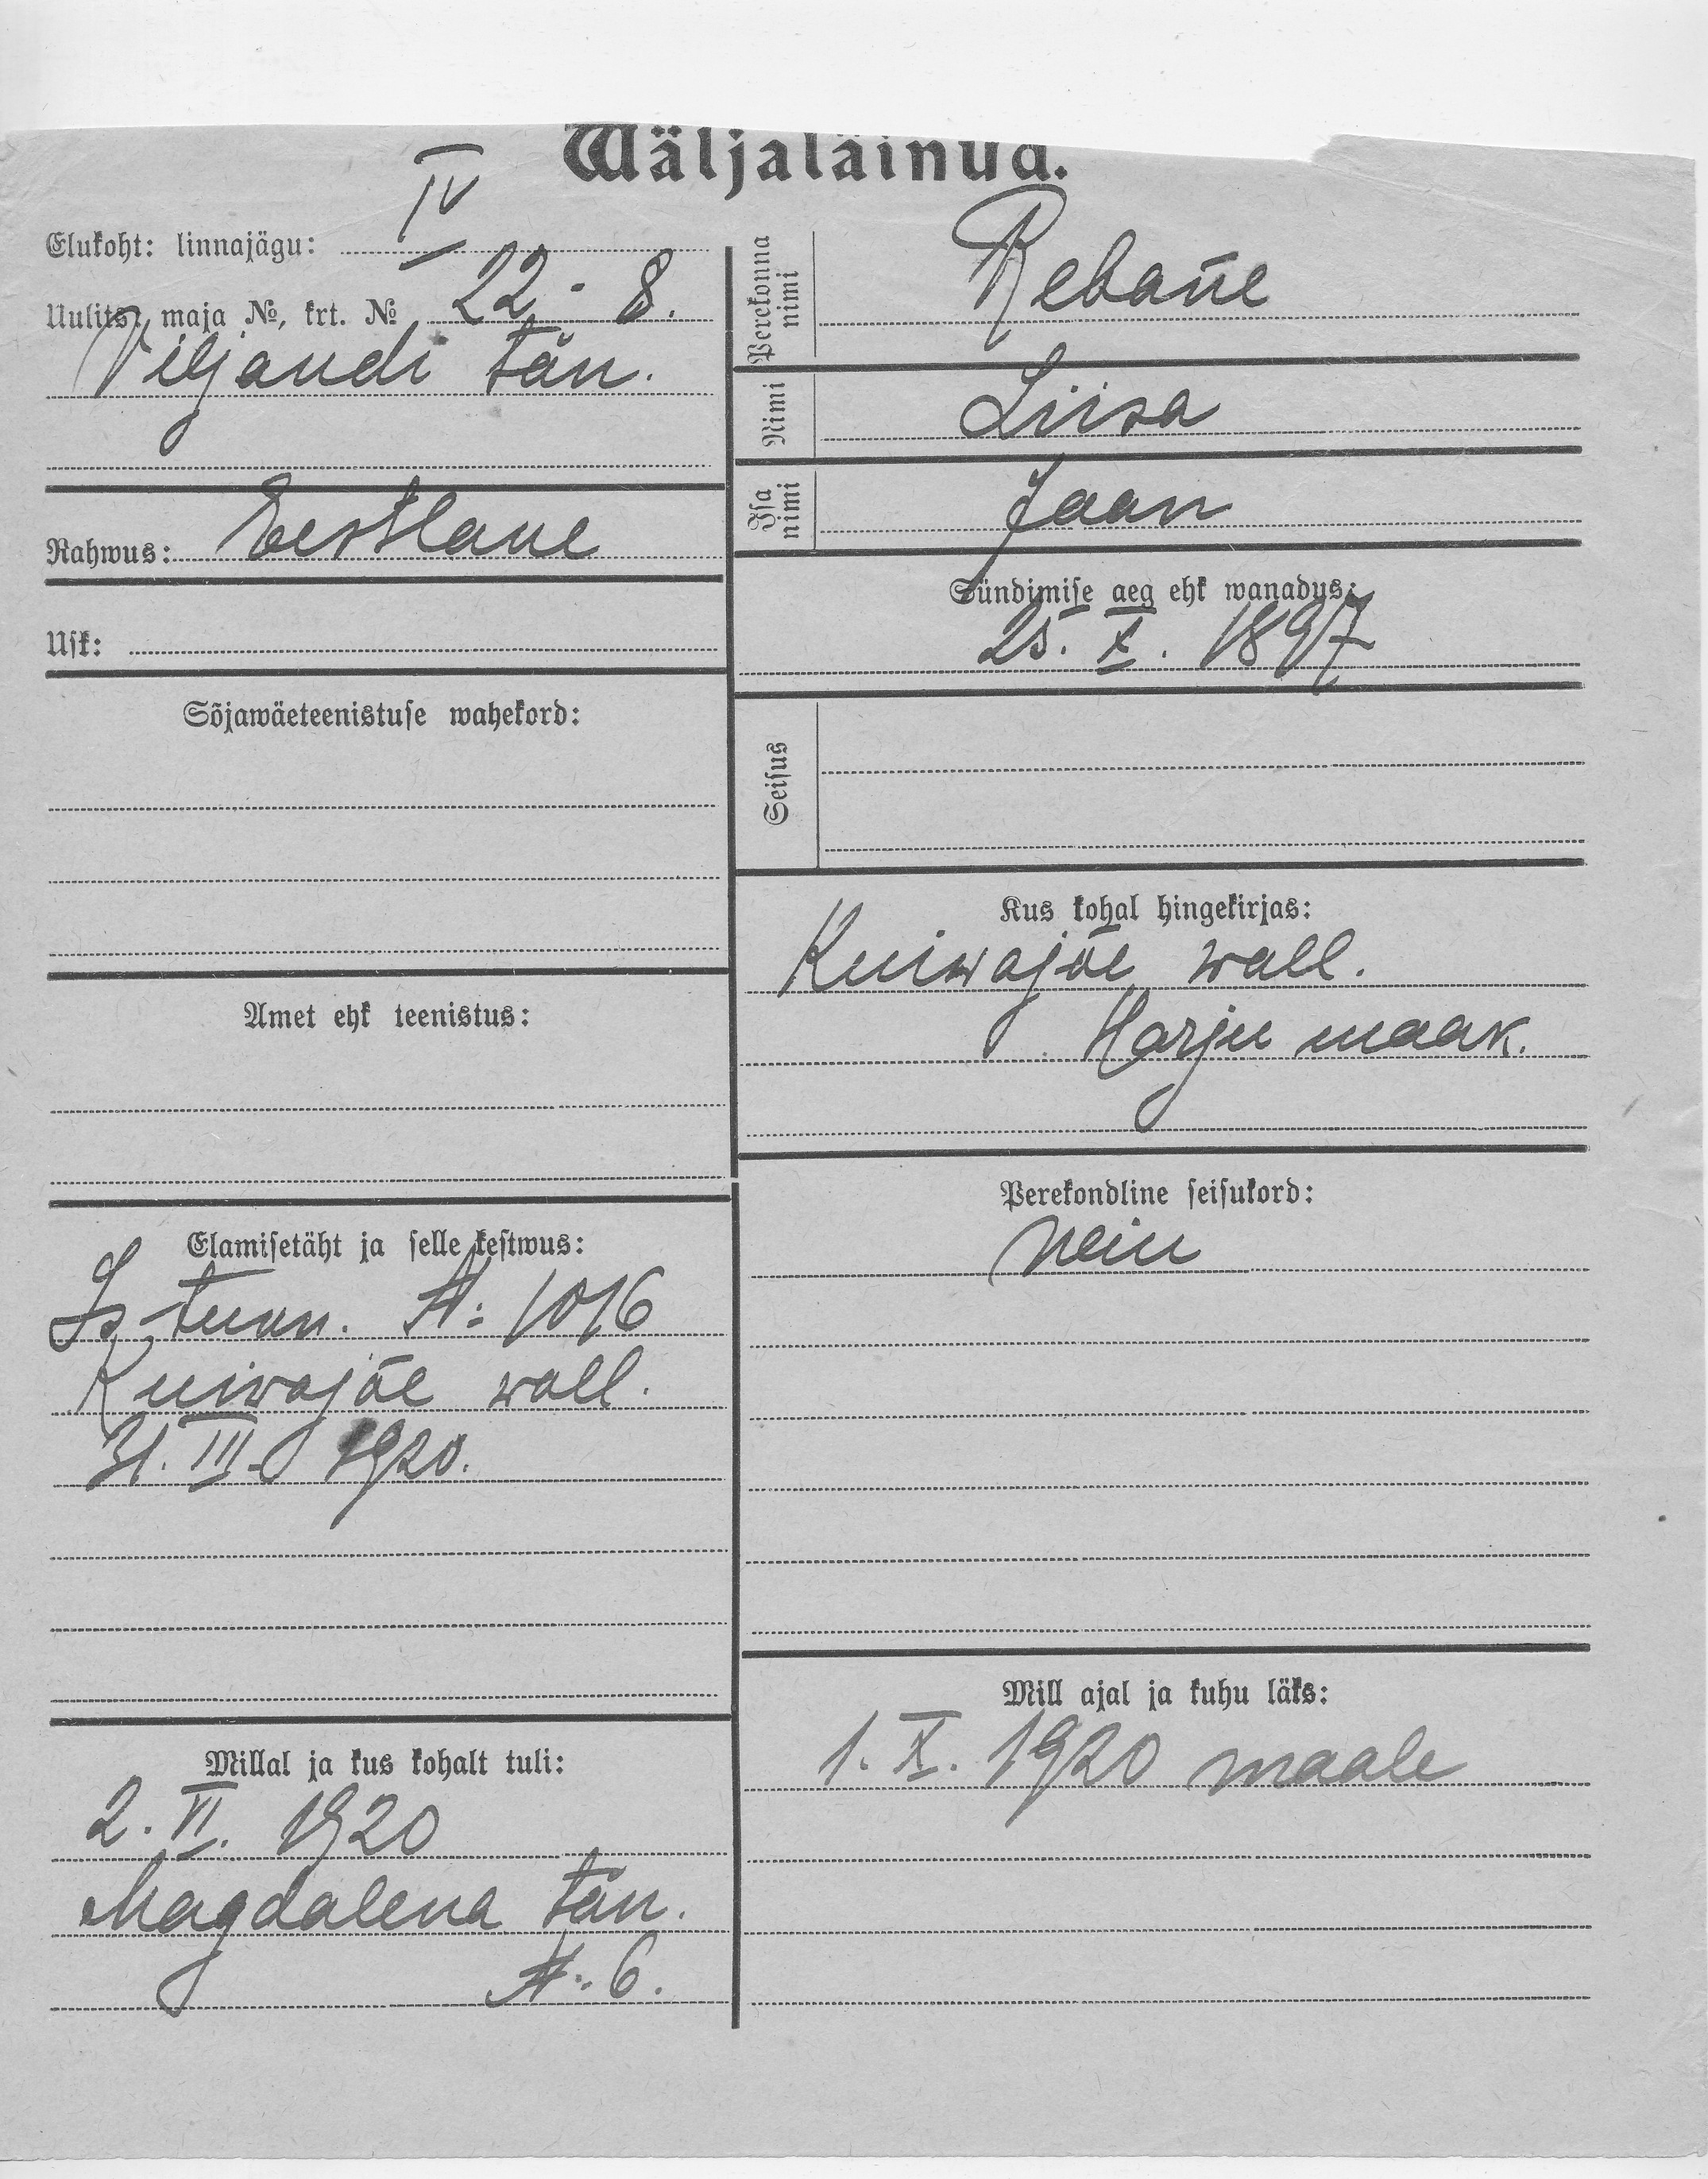 Wäljaläinud.
Elukoht: linnajägu: IV
Uulits, maja №, krt. № 22 - 8.
Viljandi tän.
Rahwus: Eestlane
Usk:
Sõjawäeteenistuse wahekord:
Amet ehk teenistus:
Elamisetäht ja selle kestwus:
Is. tunn. №: 1016
Kuiwajõe wall.
31. III. 1920.
Millal ja kus kohalt tuli:
2. VI. 1920
Magdalena tän.
№. 6.
Perekonna nimi Rebane
Nimi Liisa
Isa nimi Jaan
Sündimise aeg ehk wanadus:
25. X. 1897
Seisus
Kus kohal hingekirjas:
Kuiwajõe wall.
Harju maak.
Perekondline seisukord:
neiu
Mill ajal ja kuhu läks:
1. X. 1920 maale